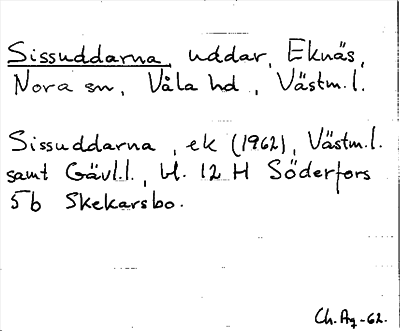 Sissuddarna, uddar, Eknäs,
Nora sn, Våla hd, Västm.l.
Sissuddarna, ek (1962), Västm.l.
samt Gävl.l., bl. 12 H Söderfors
5b Skekarsbo.
Ch. Ag -62.